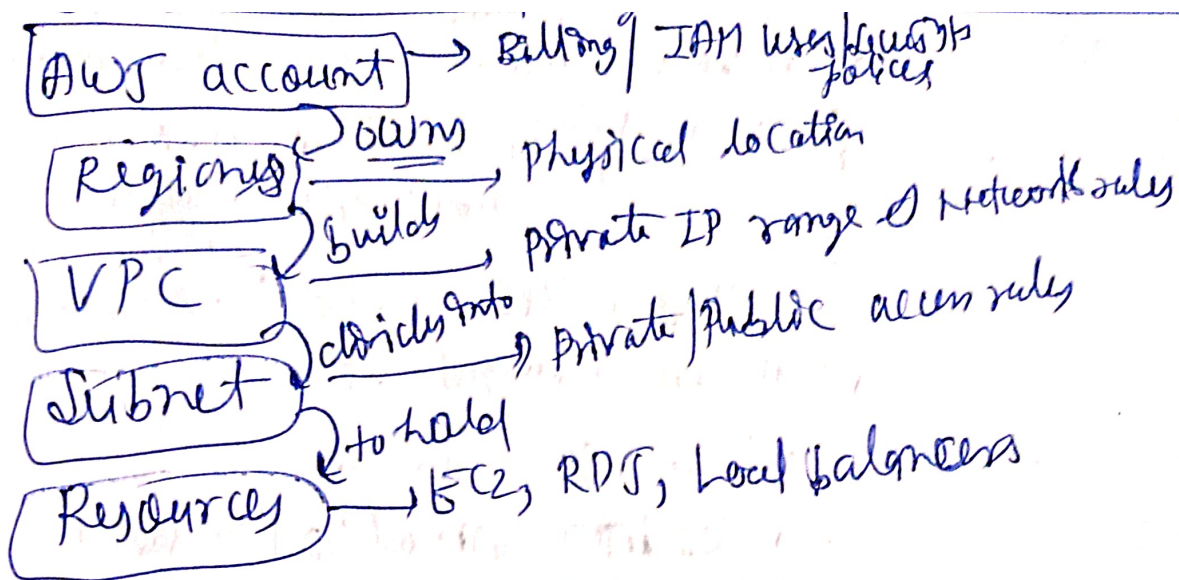 AWS account → Billing / IAM uses/security polices
owns
Regions → Physical location
builds
VPC → Private IP range & Network rules
divides into
Subnet → Private/Public access rules
to hold
Resources → EC2, RDS, Load balancers